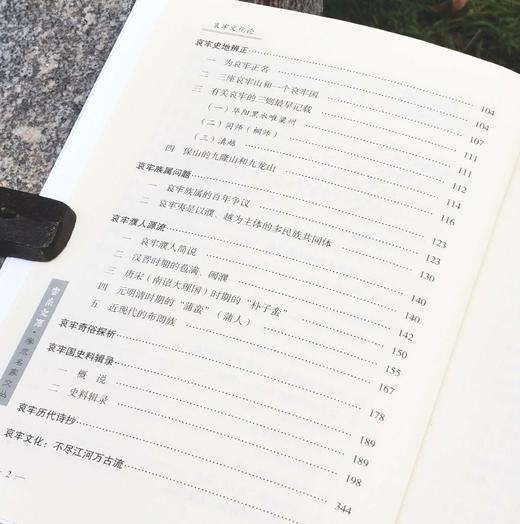 哀牢文化论
哀牢史地辨正 104
一 为哀牢正名 104
二 三座哀牢山和一个哀牢国 107
三 有关哀牢的三则最早记载 111
（一）华阳黑水唯梁州 111
（二）同师（桐师） 112
（三）滇越 114
四 保山的九隆山和九龙山 116
哀牢族属问题 123
一 哀牢族属的百年争议 123
二 哀牢夷是以濮、越为主体的多民族共同体 130
哀牢濮人源流 140
一 哀牢濮人简说 140
二 汉晋时期的苞满、闽濮 142
三 唐宋（南诏大理国）时期的“朴子蛮” 150
四 元明清时期的“蒲蛮”（蒲人） 155
五 近现代的布朗族 167
哀牢奇俗探析 178
哀牢国史料辑录 189
一 概 说 189
二 史料辑录 198
哀牢历代诗抄 344
哀牢文化：不尽江河万古流
2 —
名家文丛